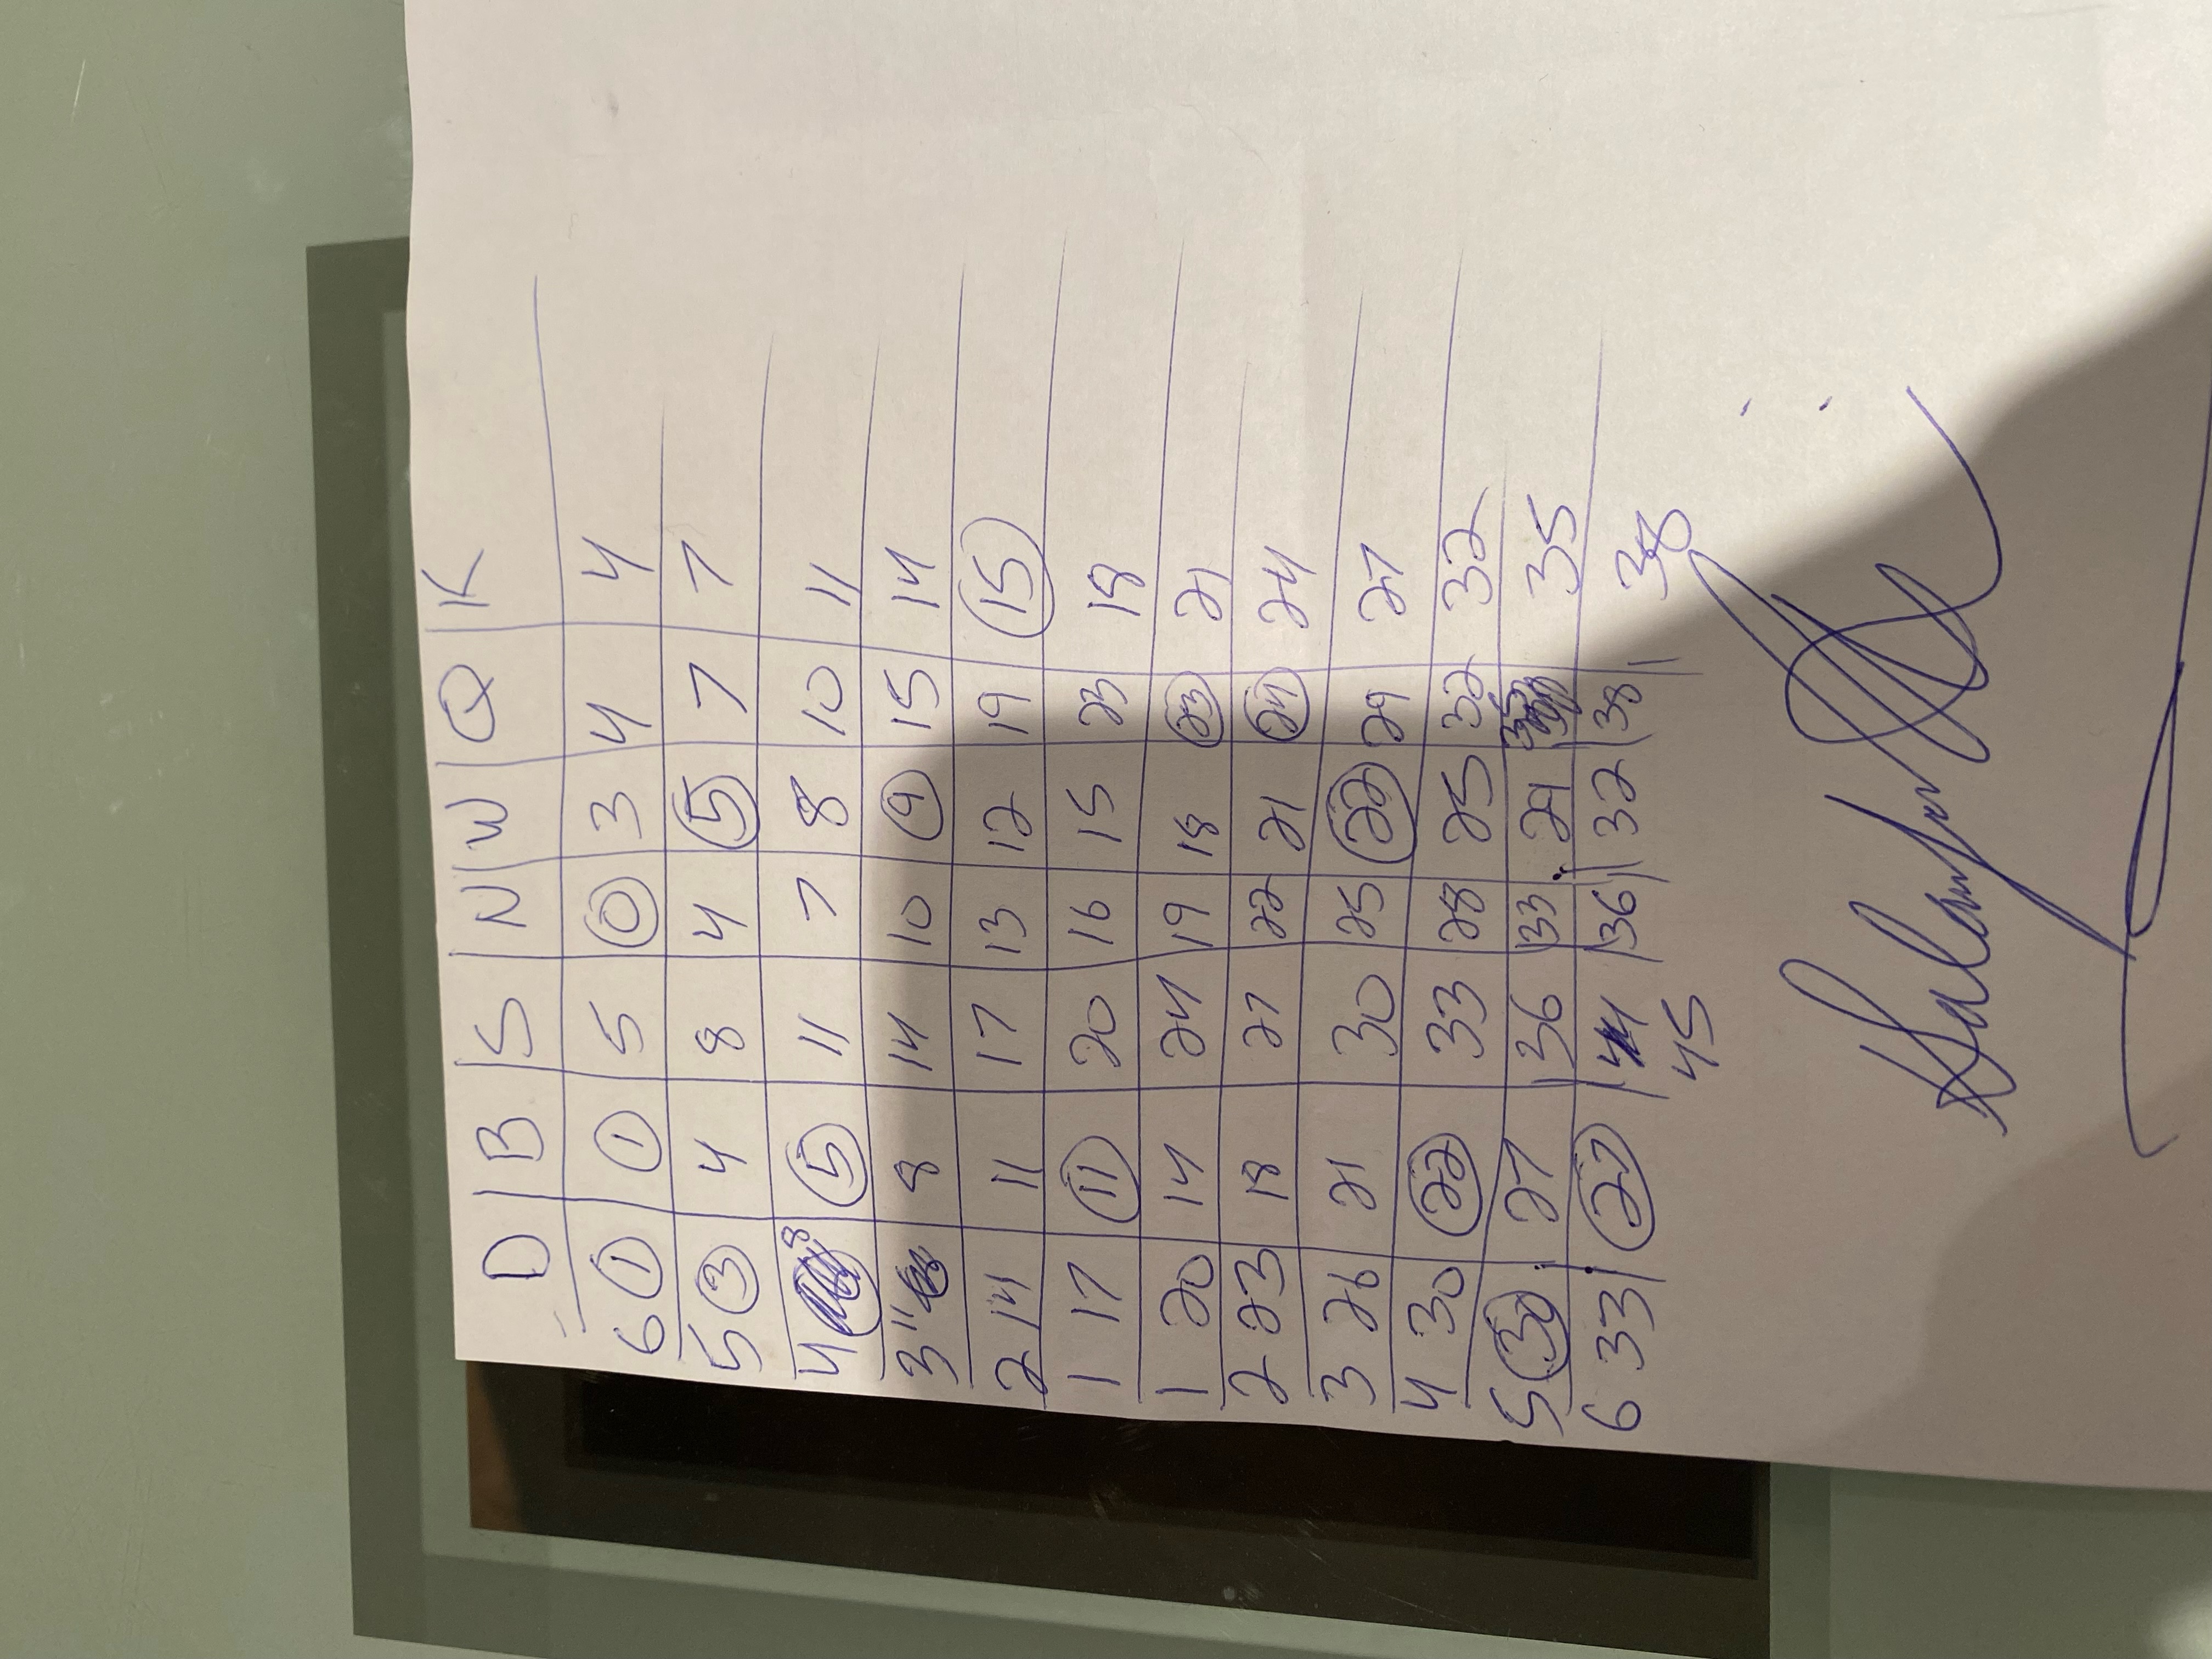 D B S N W Q K
6 1 1 5 0 3 4 4
5 3 4 8 4 5 7 7
4 8 5 11 7 8 10 11
3 11 8 14 10 9 15 14
2 14 11 17 13 12 19 15
1 17 11 20 16 15 23 18
1 20 14 24 19 18 23 21
2 23 18 27 22 21 24 24
3 26 21 30 25 22 29 27
4 30 22 33 28 25 32 32
5 30 27 36 33 29 35 35
6 33 27 44 36 32 38 38
45